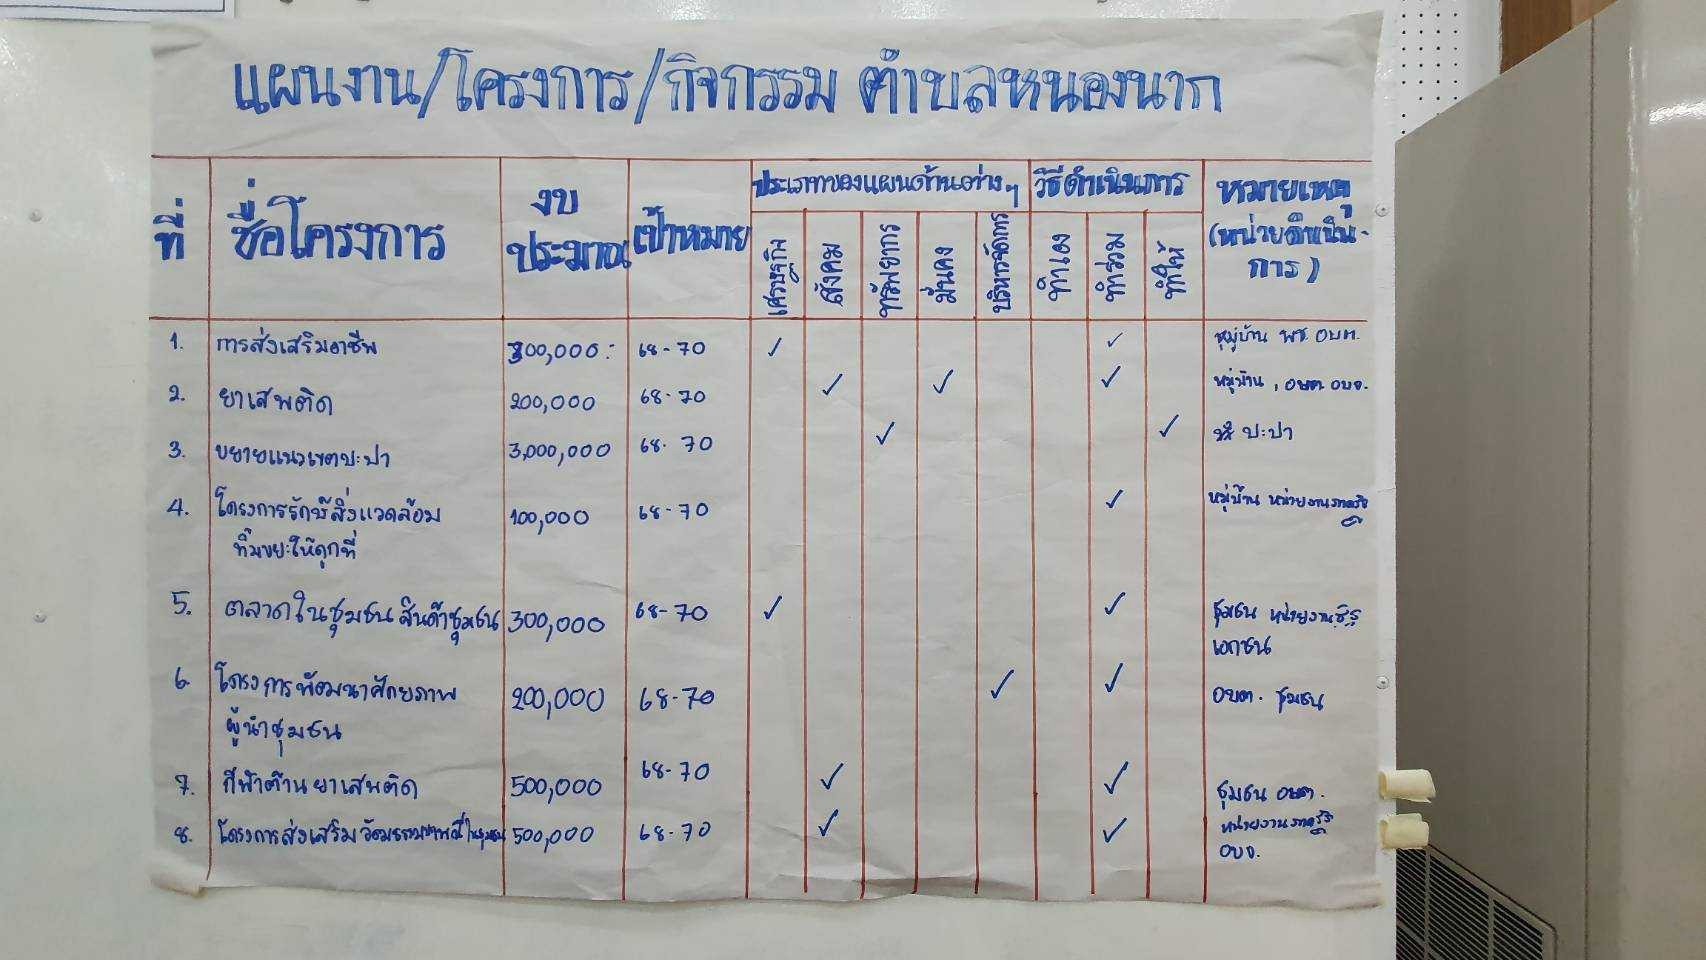 แผนงาน/โครงการ/กิจกรรม ตำบลหนองนาก
ที่ ชื่อโครงการ งบประมาณ เป้าหมาย ประเภทของแผนด้านต่างๆ วิธีดำเนินการ หมายเหตุ (หน่วยดำเนินการ)
เศรษฐกิจ สังคม ทรัพยากร มั่นคง บริหารจัดการ ทำเอง ทำร่วม ทำให้
1. การส่งเสริมอาชีพ 300,000.- 68-70 ✓ ✓ หมู่บ้าน พช. อบต.
2. ยาเสพติด 200,000 68-70 ✓ ✓ ✓ หมู่บ้าน, อบต. อบจ.
3. ขยายแนวเขตปะปา 3,000,000 68-70 ✓ ✓ ปะปา
4. โครงการรักษ์สิ่งแวดล้อม 100,000 68-70 ✓ หมู่บ้าน หน่วยงานภาครัฐ
ทิ้งขยะให้ถูกที่
5. ตลาดในชุมชน สินค้าชุมชน 300,000 68-70 ✓ ✓ ชุมชน หน่วยงานรัฐ
เอกชน
6 โครงการพัฒนาศักยภาพ 200,000 68-70 ✓ ✓ อบต. ชุมชน
ผู้นำชุมชน
7. กีฬาต้านยาเสพติด 500,000 68-70 ✓ ✓ ชุมชน อบต.
8. โครงการส่งเสริมวัฒนธรรมประเพณีในชุมชน 500,000 68-70 ✓ ✓ หน่วยงานภาครัฐ
อบจ.